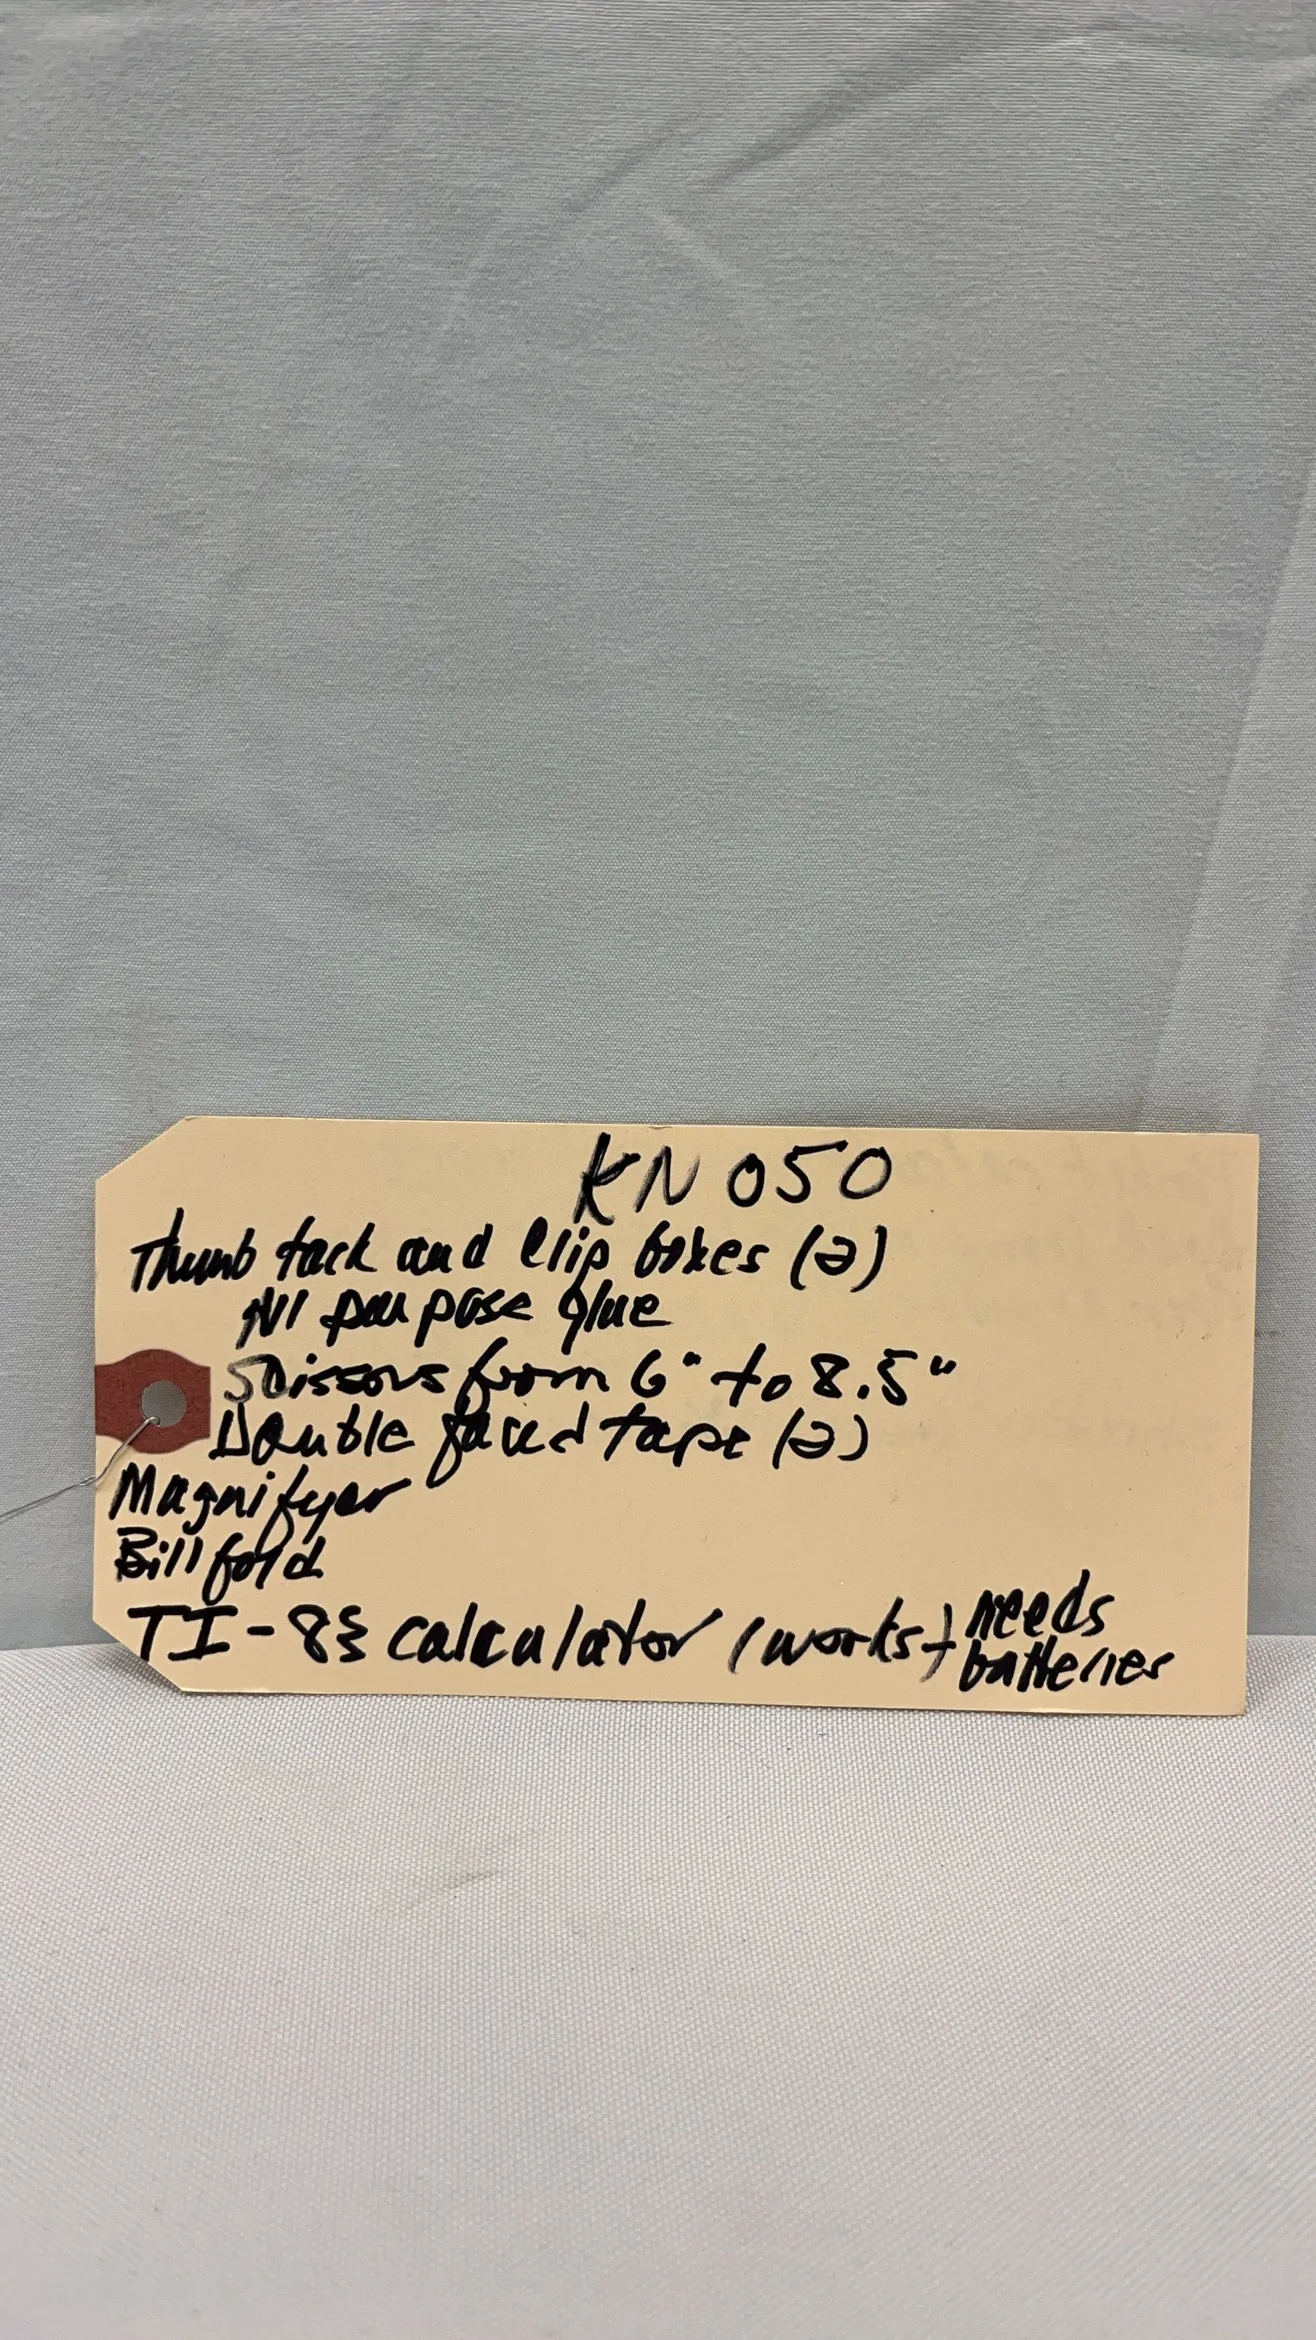 KN 050
Thumb tack and Clip boxes (2)
All purpose glue
Scissors from 6" to 8.5"
Double faced tape (2)
Magnifyer
Billfold
TI-83 calculator (works) needs
batteries